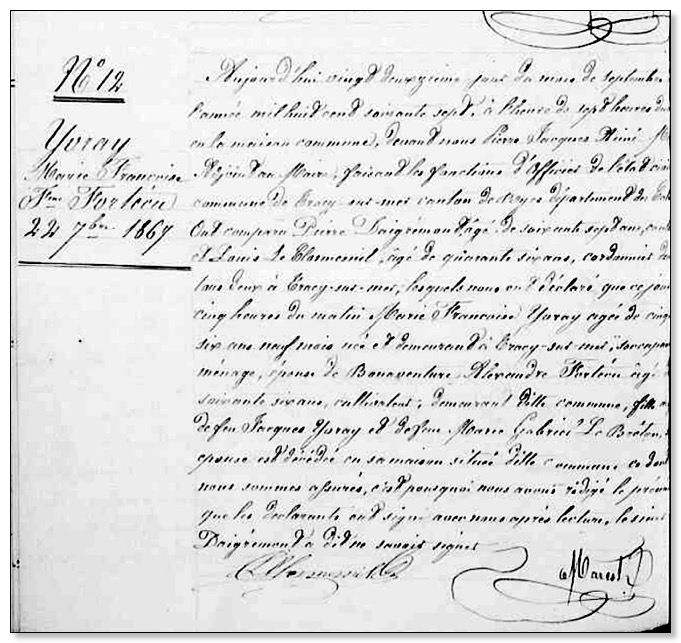 N° 12
Yvray
Marie Françoise
Fme Fortéou
22 7bre 1867
Aujourd'hui vingt deuxieme jour du mois de septembre
l'année mil huit cent soixante sept, à l'heure de sept heures du
en la maison commune, devant nous Pierre Jacques Aimé M
Adjoint au Maire, faisant les fonctions d'Officier de l'état civil
commune de Tracy-sur-mer canton de Ryes département du Cal
Ont comparu Pierre Daigremont âgé de soixante sept ans,
et Louis Le Closmesnil, âgé de quarante six ans, cordonnier
tous deux à Tracy-sur-mer, lesquels nous ont déclaré que ce jour
cinq heures du matin Marie Françoise Yvray agée de cinq
six ans neuf mois née et demeurant à Tracy-sur-mer,
ménage, épouse de Bonaventure Alexandre Fortéou âgé d
soixante six ans, cultivateur, demeurant dite commune, fille
de feu Jacques Yvray et de feue Marie Le Bréton,
epouse est décédée en sa maison située dite commune ce dont
nous sommes assurés, c'est pourquoi nous avons rédigé le présent
que les déclarants ont signé avec nous après lecture, le sieur
Daigremont a dit ne savoir signer